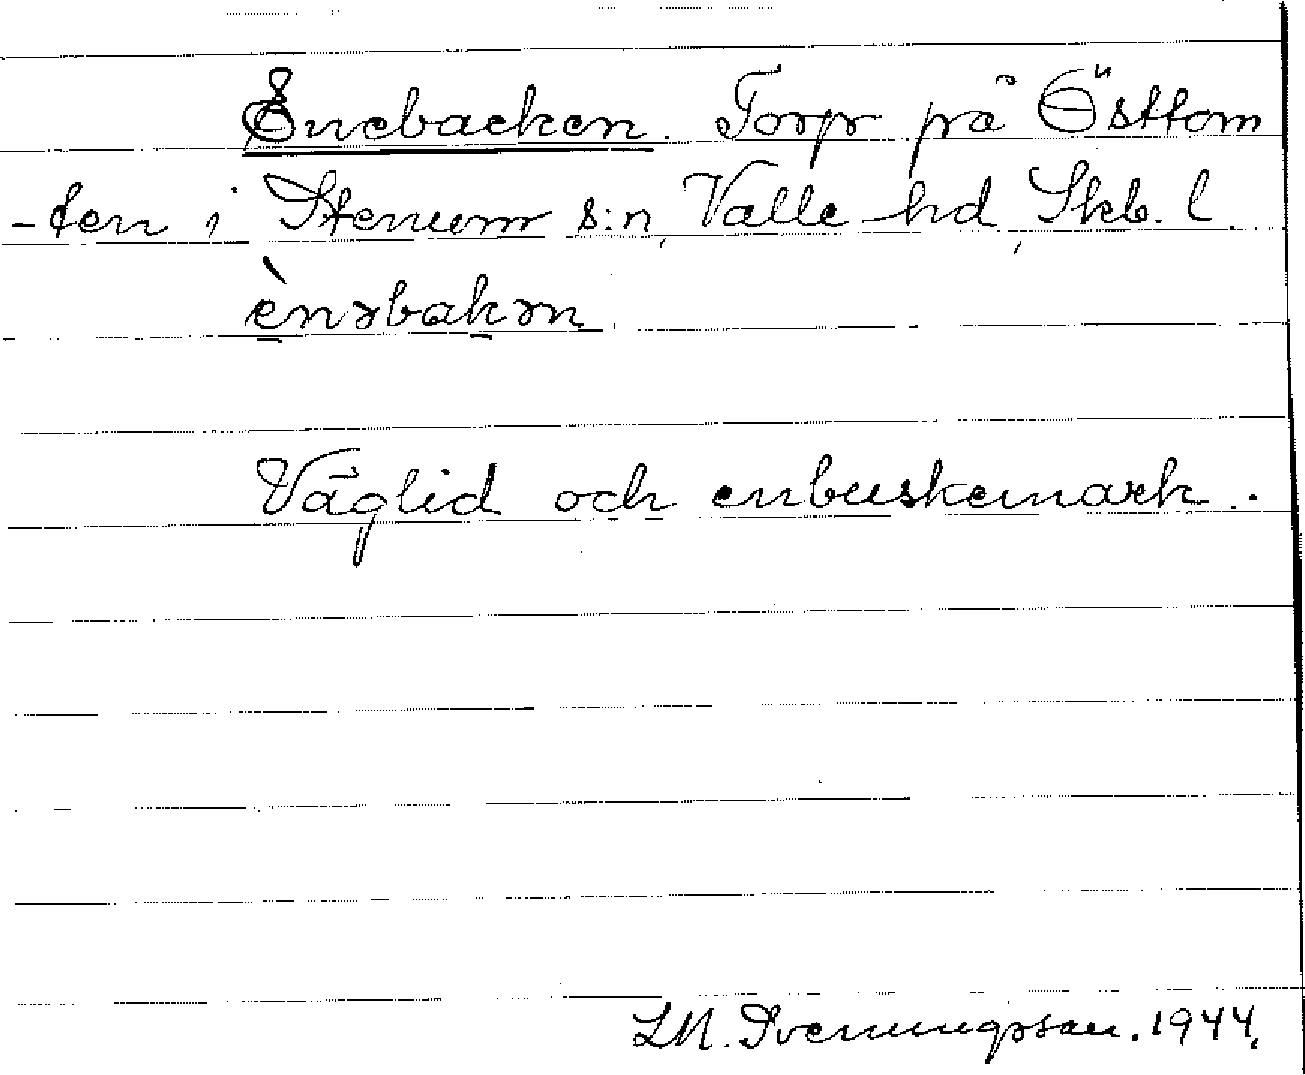 Enebacken. Torp på Östtom
-ten i Stenum s:n, Valle hd, Skb. l.
ènəbakən
Väglid och enbuskemark.
L.M. Svenungsson. 1944.